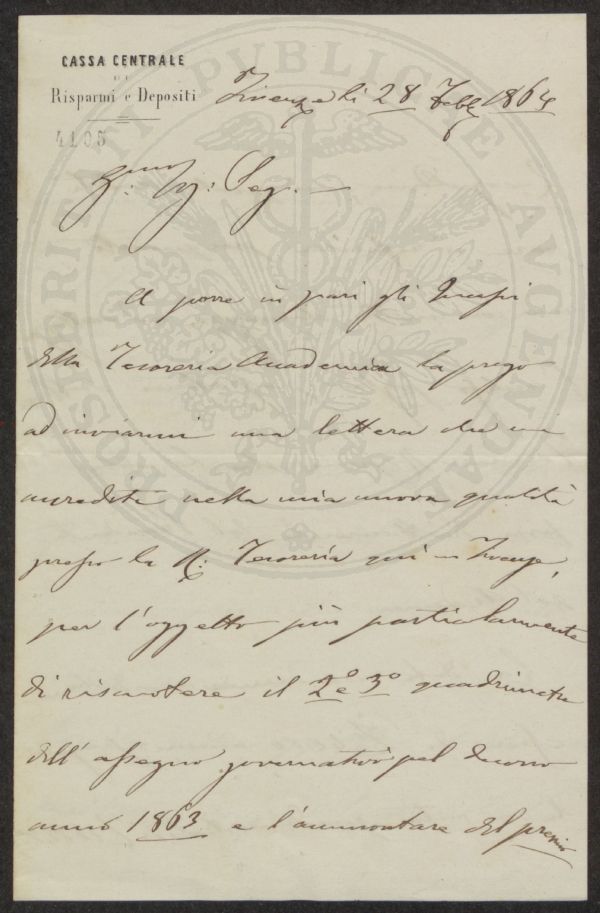 CASSA CENTRALE
DI
Risparmi e Depositi
4105
Firenze li 28 Febb 1864
Sig: Seg.
A porre in pari gli Incassi
della Tesoreria Accademica la prego
ad inviarmi una lettera che mi
accrediti nella mia nuova qualità
presso la R. Tesoreria qui in Firenze,
per l'oggetto più particolarmente
di riscuotere il 2º e 3º quadrimestre
dell' assegno governativo pel decorso
anno 1863 e l'ammontare del premio
PROSPERITATI PUBLICAE AVGENDAE